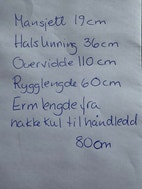 Mansjett 19cm
Halslinning 36cm
Overvidde 110cm
Rygglengde 60cm
Ermlengde fra
nakkekul til håndledd
80cm